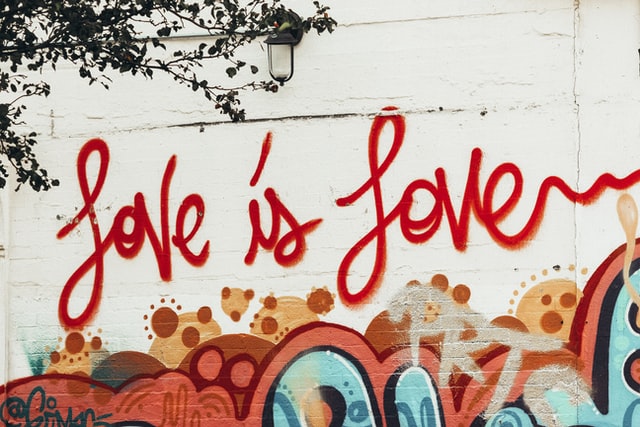 love is love